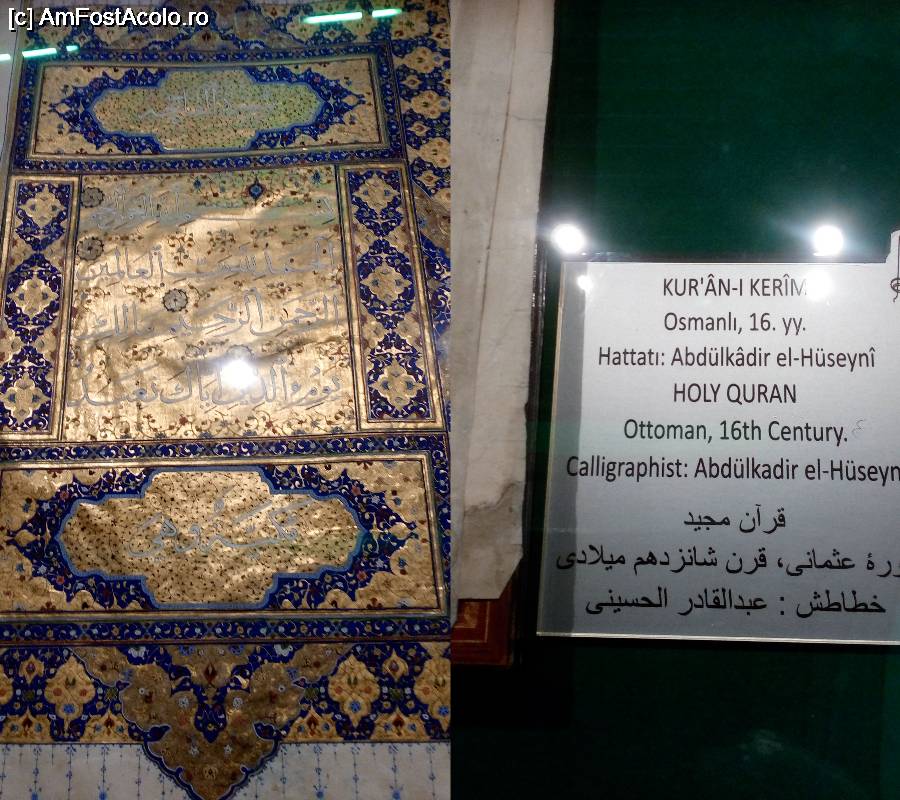 [c] AmFostAcolo.ro
بسم الله الرحمن الرحيم
الحمد لله رب العالمين
الرحمن الرحيم مالك
يوم الدين اياك نعبد
KUR'ÂN-I KERÎM
Osmanlı, 16. yy.
Hattatı: Abdülkâdir el-Hüseynî
HOLY QURAN
Ottoman, 16th Century.
Calligraphist: Abdülkadir el-Hüseyn
قرآن مجید
ورۀ عثمانی، قرن شانزدهم میلادی
خطاطش : عبدالقادر الحسینی